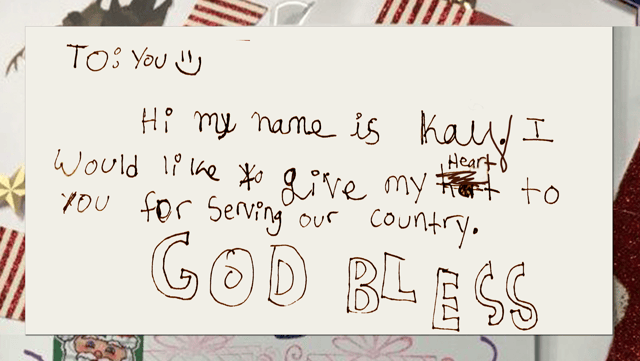 TO: You
Hi my name is I
Would like to give my Heart to
You for serving our country.
GOD BLESS